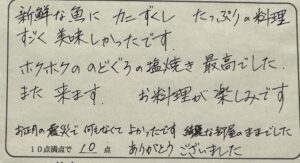 新鮮な魚に カニづくし たっぷりの料理
すごく 美味しかったです.
ホクホクの のどぐろの塩焼き 最高でした.
また 来ます. お料理が 楽しみです
お正月の震災で 何もなくて よかったです 綺麗な部屋のままでした
10点満点で 10 点 ありがとう ございました